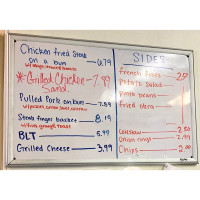 Chicken fried Steak
on a bun — 6.79
*Grilled Chicken - 7.89
Sand.
Pulled Pork on bun — 7.89
Steak finger basket — 8.19
w/fries, gravy & Toast
BLT — 5.99
Grilled Cheese — 3.99
SIDES
French Fries
Potato Salad
Pinto beans
Fried Okra
Coleslaw — 2.50
Onion rings — 2.99
Chips — 2.00